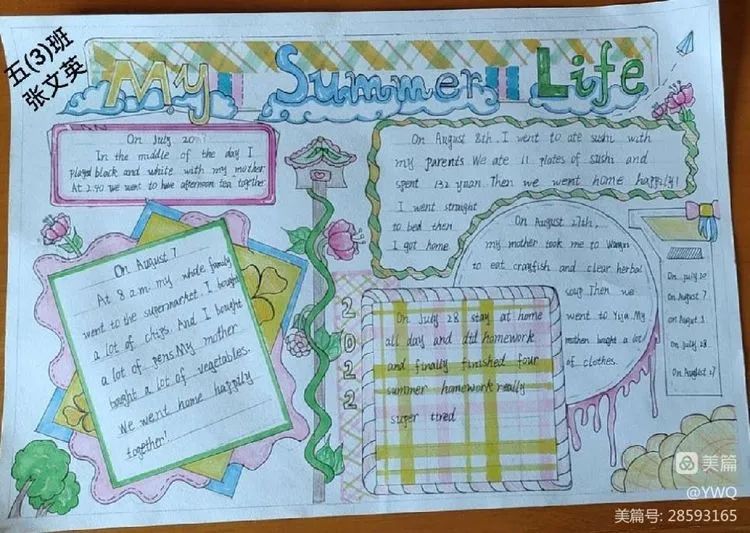 五(3)班
张文英
My Summer Life
On July 20
In the middle of the day I
played black and white with my mother
At 2.40 we went to have afternoon tea together
On August 8th. I went to ate sushi with
my parents We ate 11 plates of sushi and
spent 132 yuan. Then we went home happily!
I went straight
to bed then
I got home
On August 7
At 8 a.m. my whole family
went to the supermarket. I bought
a lot of chips. And I bought
a lot of pens. My mother
bought a lot of vegetables.
We went home happily
together!
On August 27th,
my mother took me to
to eat crayfish and clear herbal
soup. Then we
went to Yuja. My
mother bought a lot
of clothes.
2022
On July 28 stay at home
all day and did homework
and finally finished four
summer homework really
super tired
On July 20
On August 7
on August 8
on July 28
On August 27
美篇
@YWQ
美篇号: 28593165